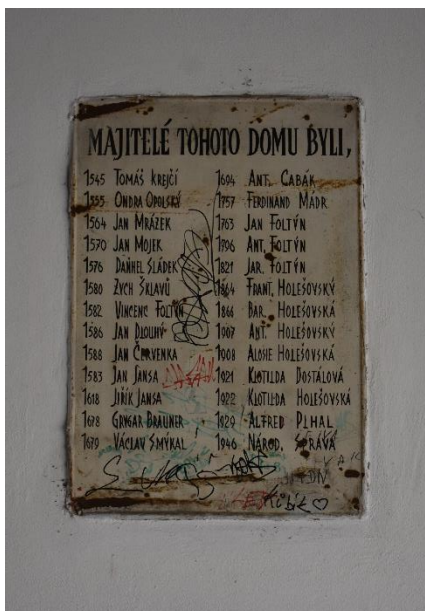 MAJITELÉ TOHOTO DOMU BYLI,
1545 TOMÁŠ KREJČÍ
1555 ONDRA OPOLSKÝ
1564 JAN MRÁZEK
1570 JAN MOJEK
1576 DAŇHEL SLÁDEK
1580 ZYCH ŠKLAVŮ
1582 VINCENC FOLTÝN
1586 JAN DLOUHÝ
1588 JAN ČERVENKA
1583 JAN JANSA
1618 JIŘÍK JANSA
1678 GRYGAR BRAUNER
1679 VÁCLAV SMÝKAL
1694 ANT. CABÁK
1757 FERDINAND MADR
1763 JAN FOLTÝN
1796 ANT. FOLTÝN
1821 JAR. FOLTÝN
1864 FRANT. HOLEŠOVSKÝ
1866 BAR. HOLEŠOVSKÁ
1907 ANT. HOLEŠOVSKÝ
1908 ALOISE HOLEŠOVSKÁ
1921 KLOTILDA DOSTÁLOVÁ
1922 KLOTILDA HOLEŠOVSKÁ
1929 ALFRED PLHAL
1946 NÁROD. SPRÁVA